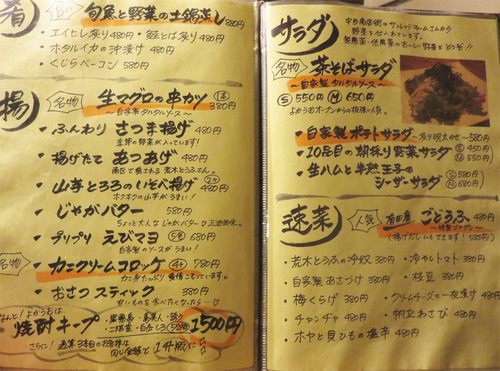 肴
旬魚と野菜の土鍋蒸し 880円
・エイヒレ炙り 480円 ・鮭とば炙り 480円
・ホタルイカの沖漬け 480円
・くじらベーコン 580円
揚
名物 生マグロの串カツ 380円
～自家製タルタルソース～
・ふんわり さつま揚げ 480円
季節の野菜が入っています!
・揚げたて あつあげ 480円
・山芋とろろのいそべ揚げ 480円
・じゃがバター 580円
・プリプリ えびマヨ 680円
自家製のソースがうまい!
名物 カニクリームコロッケ 780円
・おさつスティック 380円
焼酎キープ
1500円
サラダ
中央商店街の
野菜を仕入れています。
名物 茶そばサラダ
～自家製タルタルソース～
S 550円 M 650円
・自家製ポテトサラダ 580円
・10品目の朝採り野菜サラダ S 450円 M 550円
・生ハムと半熟玉子の
シーザーサラダ S 580円 M 680円
速菜
人気 ごどうふ 480円
・荒木とうふの冷奴 380円 ・冷やしトマト 380円
・自家製あさづけ 380円 ・枝豆 380円
・梅くらげ 380円 ・クリームチーズの一夜漬け 480円
・チャンヂャ 480円 ・帆立わさび 480円
・ホヤと貝ひもの塩辛 480円